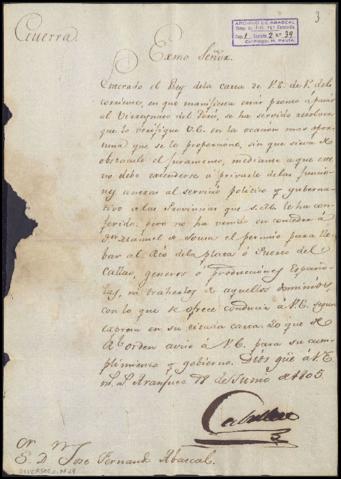 3
ARCHIVO DE ABASCAL
Guerra.
Exmo Señor.
Enterado el Rey de la carta de V.E. de 1º de este
corriente, en que manifiesta estar pronto á pasar
al Virreynato del Perú, se ha servido resolver
que lo verifique V.E. en la ocasion mas opor-
tuna que se le proporcione, sin que sirva de
obstaculo el juramento, mediante a que este
no debe extenderse á privarle de las funcio-
nes anexas al servicio politico y guberna-
tivo de las Provincias que S.M. le ha con-
ferido; pero no ha venido en conceder á
Dn Manuel de Souza el permiso para lle-
bar al Rio de la plata ó Puerto del
Callao, generos ó producciones Españo-
las, ni traherlos de aquellos dominios
con lo que se ofrece conducir á V.E. segun
expresa en su citada carta. Lo que de
Rl orden aviso á V.E. para su cum-
plimiento y gobierno. Dios gue á V.E.
m. a. Aranjuez 11 de Junio de 1805
Caballero
S. D. Jose Fernando Abascal.
DIVERSOS